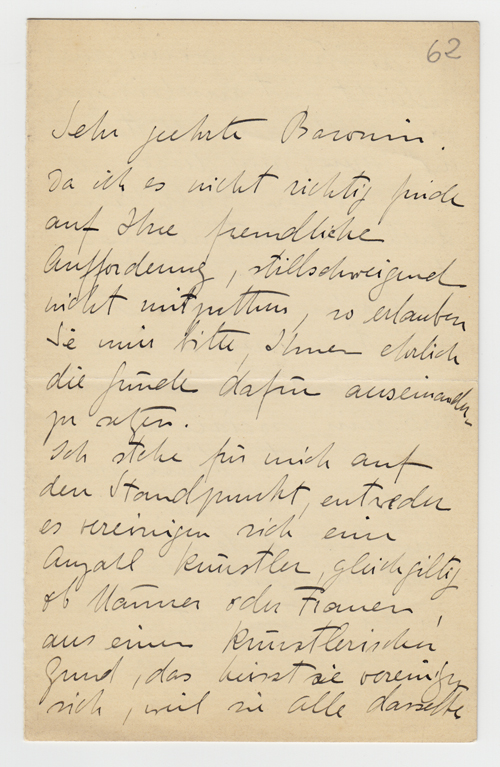 62
Sehr geehrte Baronin.
Da ich es nicht richtig finde
auf Ihre freundliche
Aufforderung, stillschweigend
nicht mitzuthun, so erlauben
Sie mir bitte, Ihnen ehrlich
die Gründe dafür auseinander-
zu setzen.
Ich stehe für mich auf
den Standpunkt, entweder
es vereinigen sich eine
Anzahl Künstler, gleichgiltig
ob Männer oder Frauen,
aus einem künstlerischen
Grund, das heisst sie vereinigen
sich, weil sie alle dasselbe